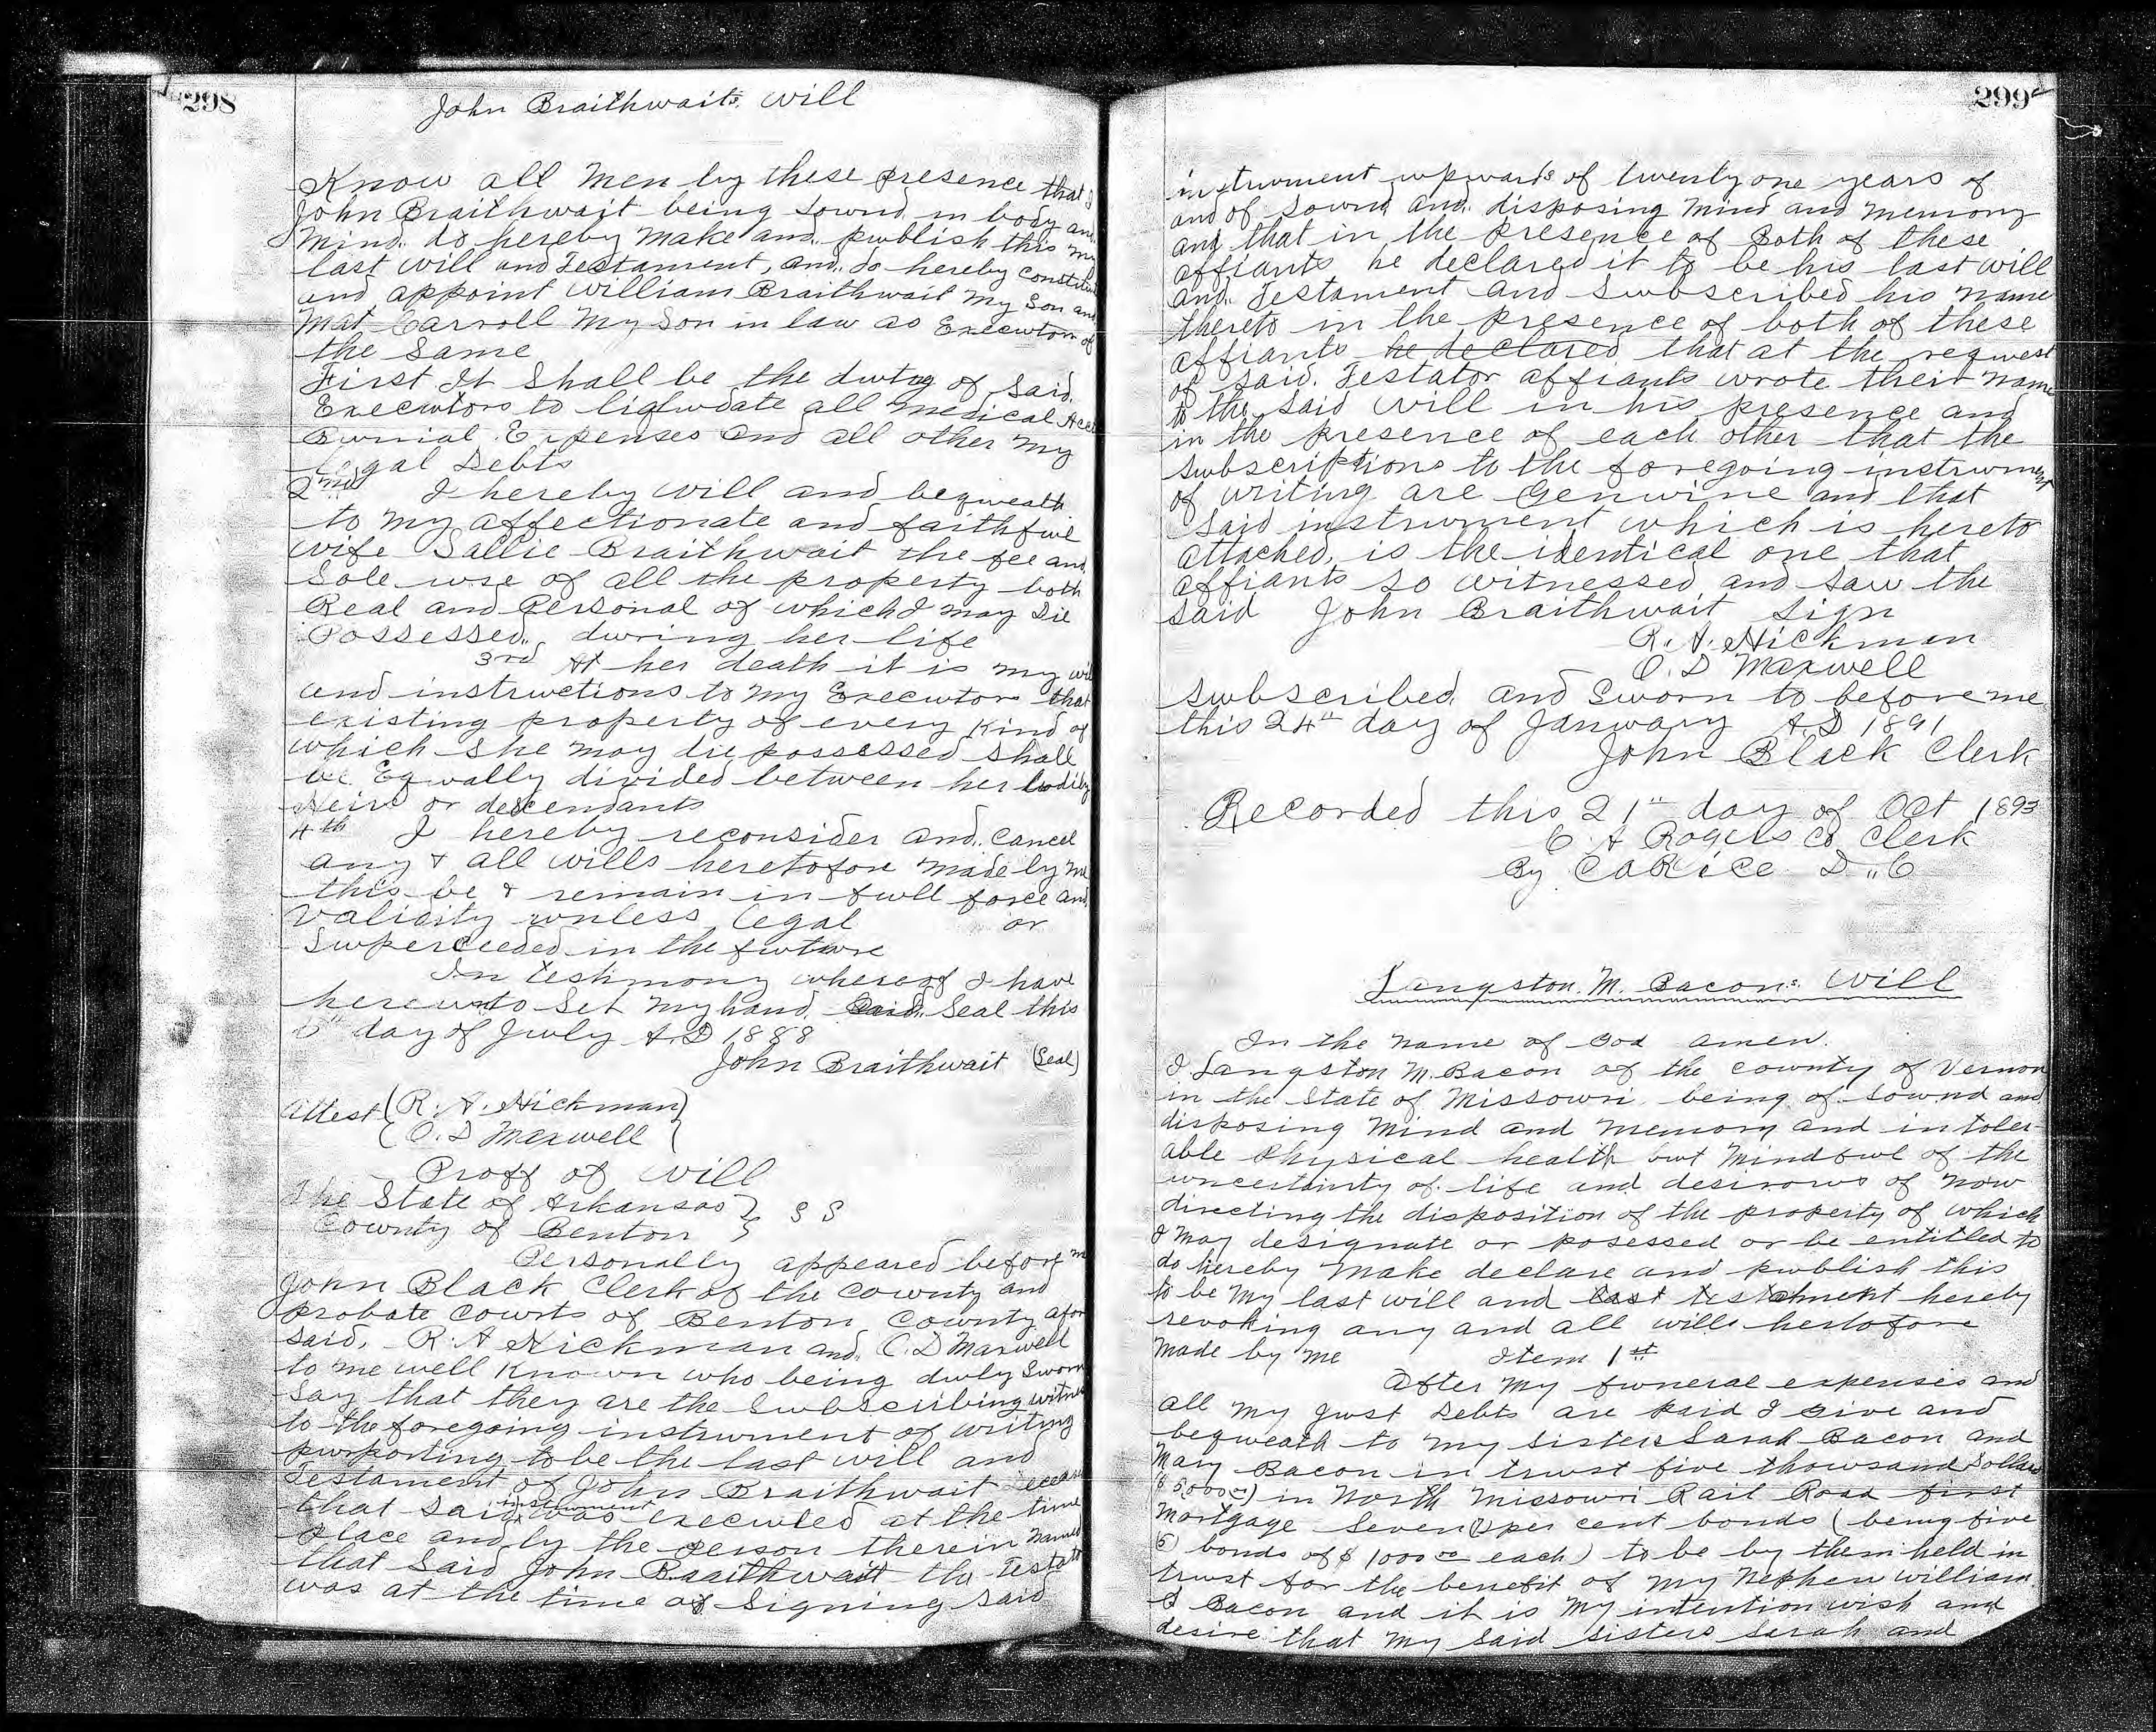 298
John Braithwaits Will
Know all Men by these presence that I
John Braithwait being Sound in body and
Mind do hereby Make and publish this my
last will and Testament, and do hereby constitute
and appoint William Braithwait My Son and
Mat Carroll My Son in law as Executors of
the Same
First It Shall be the duty of Said
Executors to liquidate all medical Acct
Burial Expenses and all other My
legal Debts
2nd I hereby will and bequeath
to my affectionate and faithful
wife Sallie Braithwait the fee and
Sole use of all the property both
Real and Personal of which I may Die
Possessed during her life
3rd At her death it is my will
and instructions to My Executors that
existing property of every Kind of
which She may die possessed Shall
be Equally divided between her bodily
Heirs or descendants
4th I hereby reconsider and cancel
any & all wills heretofore made by me
this be & remain in full force and
validity unless legal or
Superceeded in the future
In testimony whereof I have
hereunto Set My hand Seal this
day of July A.D 1888
John Braithwait (Seal)
Attest (R. A. Hickman)
(C. D Maxwell
Proff of Will
The State of Arkansas } S S
County of Benton }
Personally appeared before me
John Black Clerk of the County and
probate Courts of Benton County afore
said, R. A Hickman and C. D Maxwell
to me well Known who being duly Sworn
Say that they are the Subscribing witness
to the foregoing instrument of writing
purporting to be the last will and
Testament of John Braithwait Deceased
that said instrument was executed at the time
Place and by the Person therein Named
that Said John Braithwait the Testator
was at the time of Signing Said
299
instrument upwards of twenty one years of
and of Sound and disposing Mind and Memory
and that in the Presence of Both of these
affiants he declared it to be his last will
and Testament and Subscribed his Name
thereto in the presence of both of these
affiants he declared that at the request
of Said Testator affiants wrote their Name
to the Said Will in his presence and
in the presence of each other that the
Subscriptions to the foregoing instrument
of writing are Genuine and that
Said instrument which is hereto
attached, is the identical one that
affiants So witnessed and Saw the
Said John Braithwait Sign
R. A. Hickman
C. D Maxwell
Subscribed and Sworn to before me
this 24th day of January A.D 1891
John Black Clerk
Recorded this 21st day of Oct 1893
C A Rogers Co Clerk
By C A Rice D.C
Langston M. Bacons Will
In the Name of God amen.
I Langston M. Bacon of the County of Vernon
in the State of Missouri being of Sound and
disposing Mind and Memory and in toler-
able Physical health but Mindful of the
uncertainty of life and desirous of Now
directing the disposition of the property of which
I May designate or posessed or be entitled to
do hereby Make declare and publish this
to be My last will and last testament hereby
revoking any and all wills hertofore
Made by Me Item 1st
After My funeral expenses and
all My Just Debts are paid I Give and
bequeath to My Sisters Sarah Bacon and
Mary Bacon in trust five thousand Dollars
in North Missouri Rail Road first
Mortgage Seven (7) per cent bonds (being five
(5) bonds of $1000.00 each) to be by them held in
trust for the benefit of My Nephew William
Bacon and it is My intention wish and
desire that My Said Sisters Sarah and